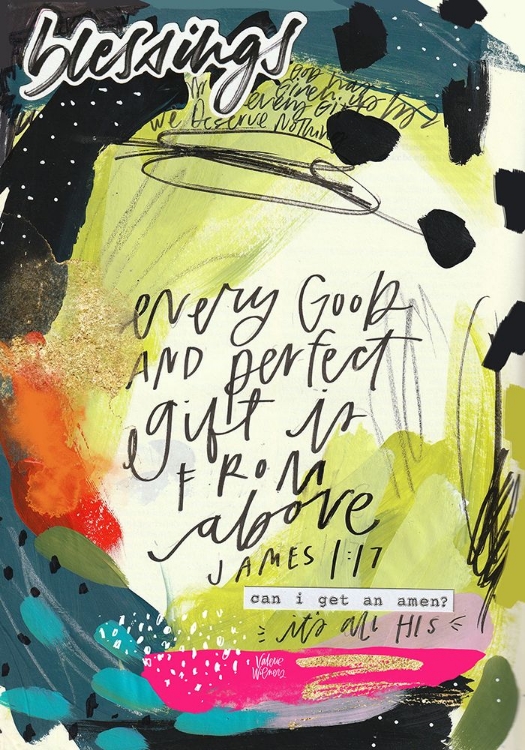 blessings
God has
given us his
every Gift
We Deserve Nothing
every Good
AND perfect
gift is
FROM
above
JAMES 1:17
can i get an amen?
it's all HIS
Valerie
Wieners